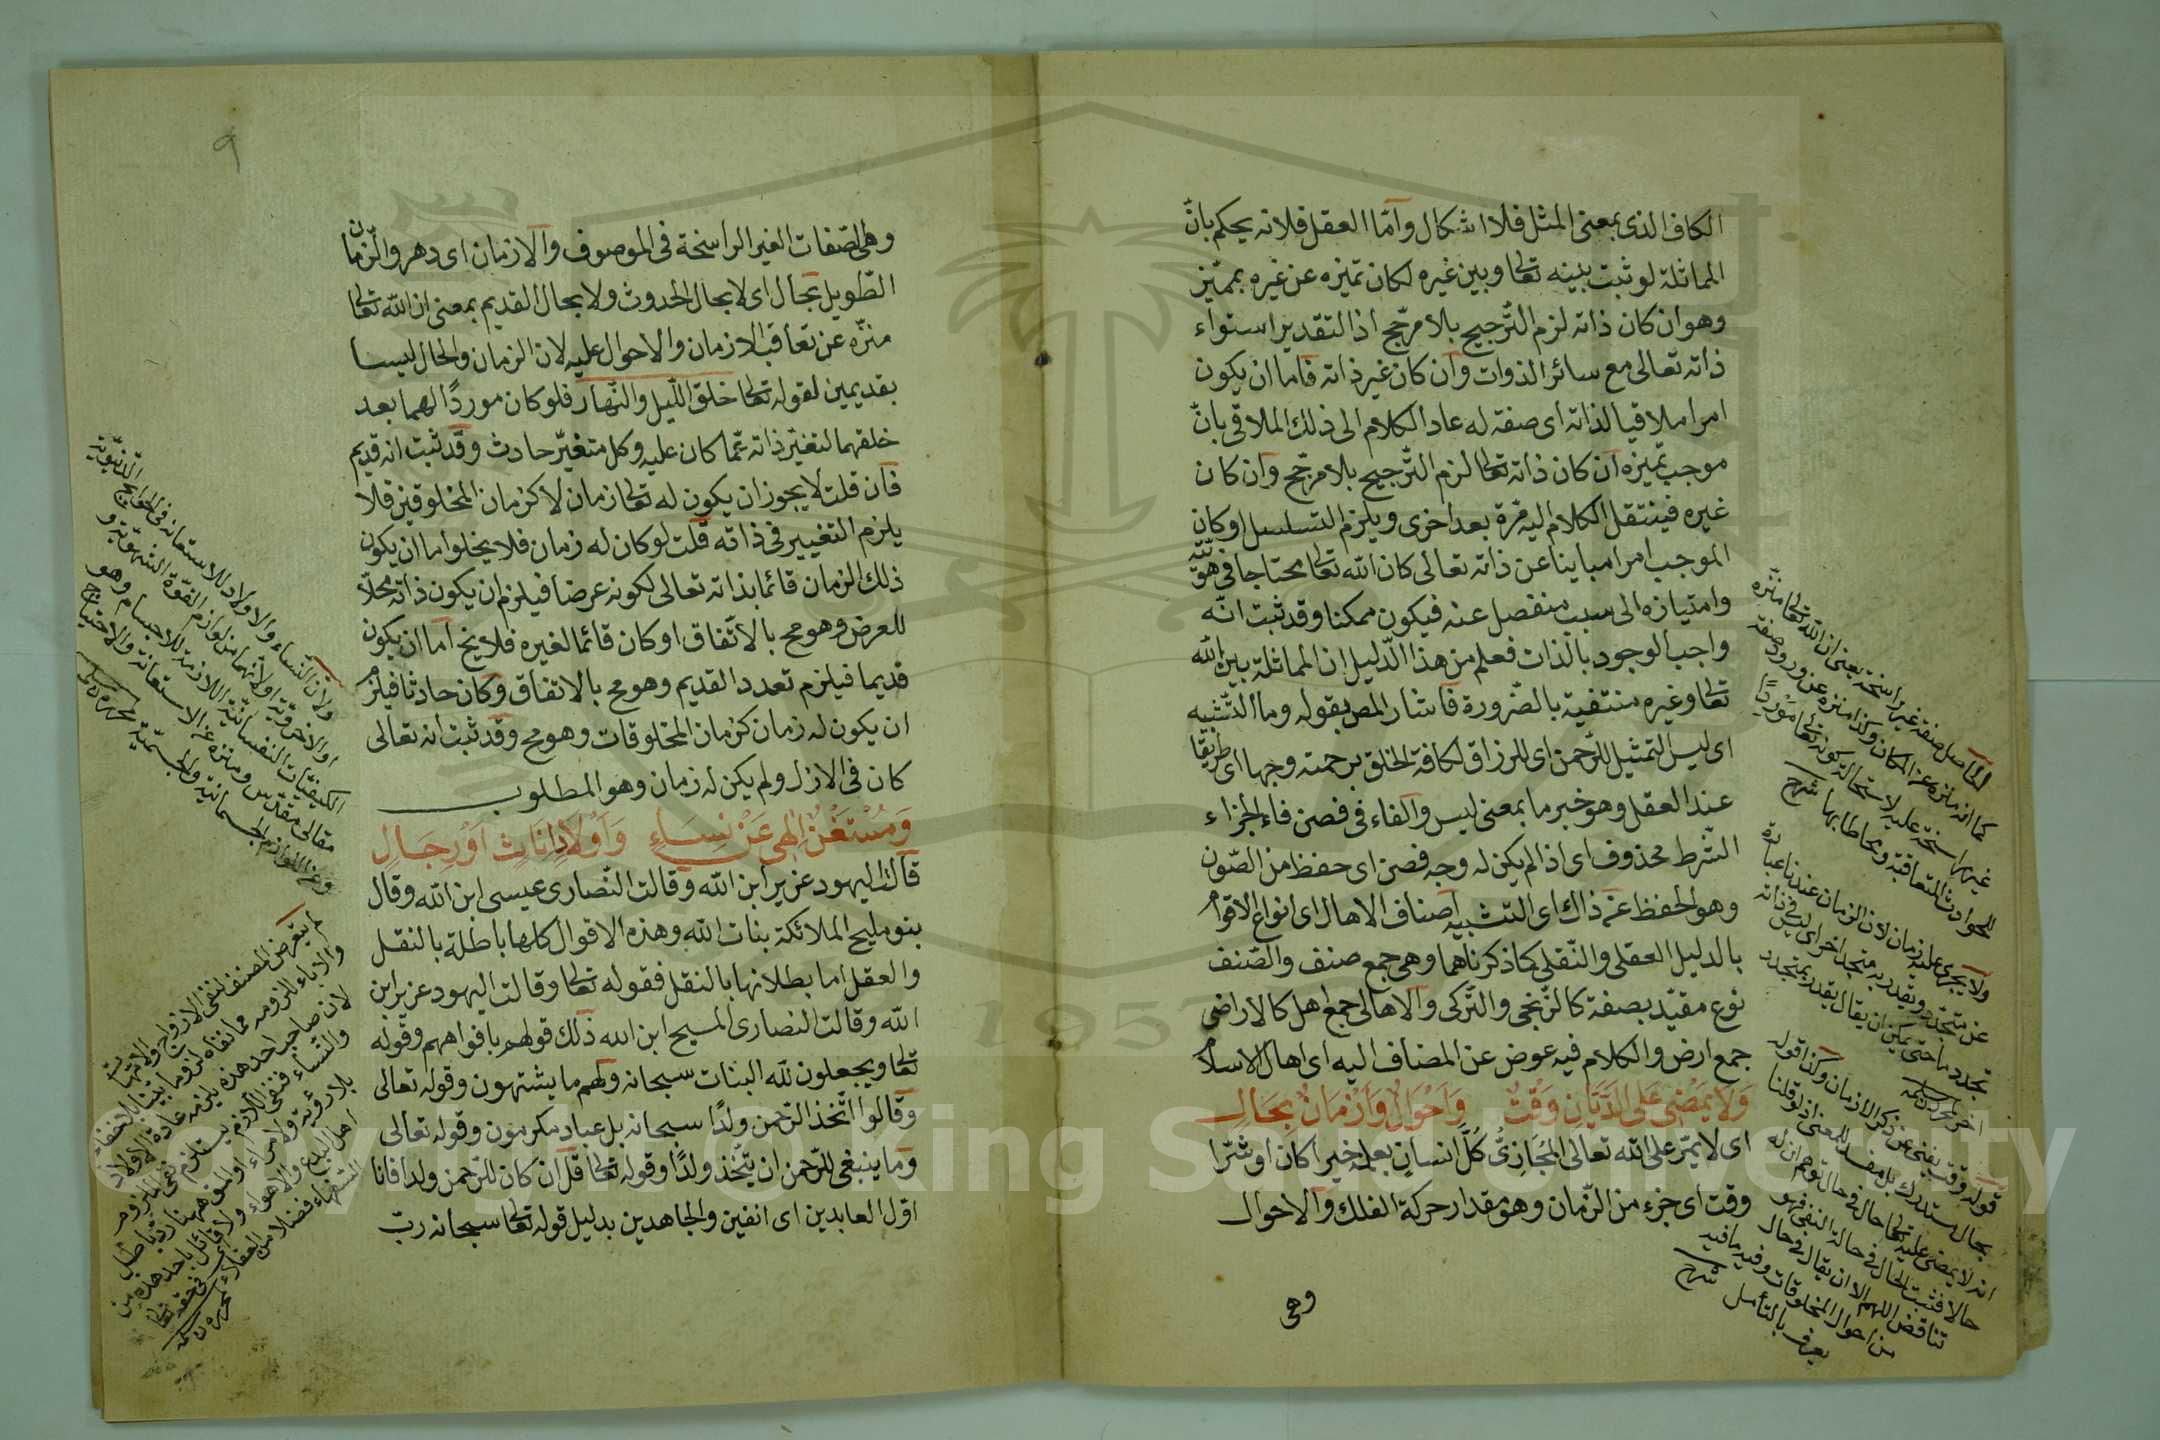 الكاف الذى بمعنى المثل فلا اشكال وآمّا العقل فلانه يحكم بانّ
المماثلة لو ثبت بينه تعالى وبين غيره لكان تميزه عن غيره بمميّز
وهو ان كان ذاته لزم التّرجيح بلا مرجّح اذ التقدير استواء
ذاته تعالى مع سائر الذوات وآن كان غير ذاته فاما ان يكون
امرا ملاقيا لذاته اى صفة له عاد الكلام الى ذلك الملاقى بانّ
موجب تميزه ان كان ذاته تعالى لزم التّرجيح بلا مرجّح وان كان
غيره فينتقل الكلام اليه مرّة بعد اخرى ويلزم التسلسل او كان
الموجب امرا مباينا عن ذاته تعالى كان الله تعالى محتاجا فى هويّته
وامتيازه الى سبب منفصل عنه فيكون ممكنا وقد ثبت انّه
واجب الوجود بالذات فعلم من هذا الدّليل ان المماثلة بين الله
تعالى وغيره منتفية بالضّرورة فاشار المص بقوله وما التّشبيه
اى ليس التمثيل للرّحمن اى للرزاق لكافة الخلق برحمته وجها اى طريقا
عند العقل وهو خبر ما بمعنى ليس والفاء فى فصن فاء الجزاء
الشّرط محذوف اى اذ الم يكن له وجه فصن اى حفظ من الصّون
وهو الحفظ عن ذاك اى التشبيه اصناف الاهال اى انواع الاقوام
بالدليل العقلى والنّقلى كما ذكرناهما وهى جمع صنف والصّنف
نوع مقيّد بصفة كالزّنجى والتّركى والاهالى جمع اهل كالاراضى
جمع ارض والكلام فيه عوض عن المضاف اليه اى اهال الاسلام
وَلَا يَمْضِى عَلَى الدَّيَّانِ وَقْتٌ وَاَحْوَالٌ وَاَزْمَانٌ بِحَالٍ
اى لا يمرّ على الله تعالى المُجَازِىُّ كُلَّ انسانٍ بعمله خيرا كان او شرّا
وقت اى جزء من الزّمان وهو مقدار حركة الفلك والاحوال
وهى
الحاصل صفة غير راسخة يعنى ان الله تعالى منزّه
كما انه منزه عن المكان وكذا منزه عن ورود صفة
غير راسخة عليه لاستحالة كونه تعالى موردًا
للحوادث المتعاقبة ومحاطا بها شرح
ولا يجرى عليه زمان لان الزمان عندنا عبارة
عن متجدّد ويقدر به متجدد اخر
تجدد ما حتى يمكن ان يقال يقدر بمتجدد
اخر
قوله وقت يغنى عن ذكر الازمان وكذا قوله
بحال مستدرك بل مفسد للمعنى اذ لو قلنا
انه لا يمضى عليه تعالى حال فى حال توهم ان له
حالا فثبت الحال فى حالة النفى فهو
تناقض اللهم الا ان يقال فى حال
من احوال المخلوقات وفيه ما فيه
يعرف بالتأمل شرح
٩
وهى الصّفات الغير الراسخة فى الموصوف والازمان اى دهر والزّمان
الطّويل بحال اى لا بحال الحدوث ولا بحال القديم بمعنى ان الله تعالى
منزّه عن تعاقب الازمان والاحوال عليه لان الزمان والحال ليسا
بقديمين لقوله تعالى خلق اللّيل والنّهار فلو كان موردًا لهما بعد
خلقهما لتغيّر ذاته عمّا كان عليه وكل متغيّر حادث وقد ثبت انه قديم
فان قلت لا يجوز ان يكون له تعالى زمان لا كزمان المخلوقين فلا
يلزم التغيير فى ذاته قلت لو كان له زمان فلا يخلوا ما ان يكون
ذلك الزمان قائما بذاته تعالى لكونه عرضا فيلزم ان يكون ذاته محلّا
للعرض وهو مح بالاتّفاق او كان قائما لغيره فلا يخ اما ان يكون
قديما فيلزم تعدد القديم وهو مح بالاتفاق وكان حادثا فيلزم
ان يكون له زمان كزمان المخلوقات وهو مح وقد ثبت انه تعالى
كان فى الازل ولم يكن له زمان وهو المطلوب
وَمُسْتَغْنٍ اِلٰهِى عَنْ نِسَاءٍ وَاَوْلَادٍ اِنَاثٍ اَوْ رِجَالٍ
قالت اليهود عزير ابن الله وقالت النّصارى عيسى ابن الله وقال
بنو مليح الملائكة بنات الله وهذه الاقوال كلها باطلة بالنقل
والعقل اما بطلانها بالنقل فقوله تعالى وقالت اليهود عزير ابن
الله وقالت النصارى المسيح ابن الله ذلك قولهم بافواههم وقوله
تعالى ويجعلون للّه البنات سبحانه ولهم ما يشتهون وقوله تعالى
وقالوا اتّخذ الرّحمن ولدًا سبحانه بل عباد مكرمون وقوله تعالى
وما ينبغى للرّحمن ان يتّخذ ولدًا وقوله تعالى قل ان كان للرّحمن ولد فانا
اوّل العابدين اى انفين والجاهدين بدليل قوله تعالى سبحانه ربّ
ولان النساء والاولاد للاستعانة فى الحوائج الدنيوية
او الاخروية ولانهما من لوازم القوة الشهوية و
الكيفيات النفسانية اللازمة للاجسام وهو
تعالى مقدس ومنزه عن الاستعانة والاحتياج
وعن اللوازم الجسمانية والجسمية
لم يتعرض المصنف لنفى الازواج والامّهات
والاباء للزومه مما نفاه لزوما بينا
لان صاحب احد هذه يلزمه عادة الاولاد
والنساء فنفى اللازم يستلزم نفى الملزوم
اهل البدع والاهواء ولا قائل باحد هذه من
السفهاء فضلا من العقلاء
Copyright © King Saud University
1957